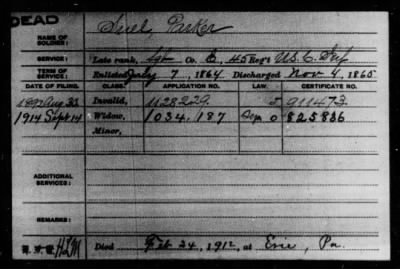 DEAD
NAME OF SOLDIER: Parker
SERVICE: Late rank, Sgt Co. E, 45 Reg't U.S.C. Inf
TERM OF SERVICE: Enlisted July 7, 1864 Discharged Nov 4, 1865
DATE OF FILING. CLASS. APPLICATION NO. LAW. CERTIFICATE NO.
1892 Aug Invalid, 1128229 J 911473
1914 Sept 14 Widow, 1034,187 O 825836
Minor,
ADDITIONAL SERVICES:
REMARKS:
Died Feb 24, 1912, at Erie, Pa